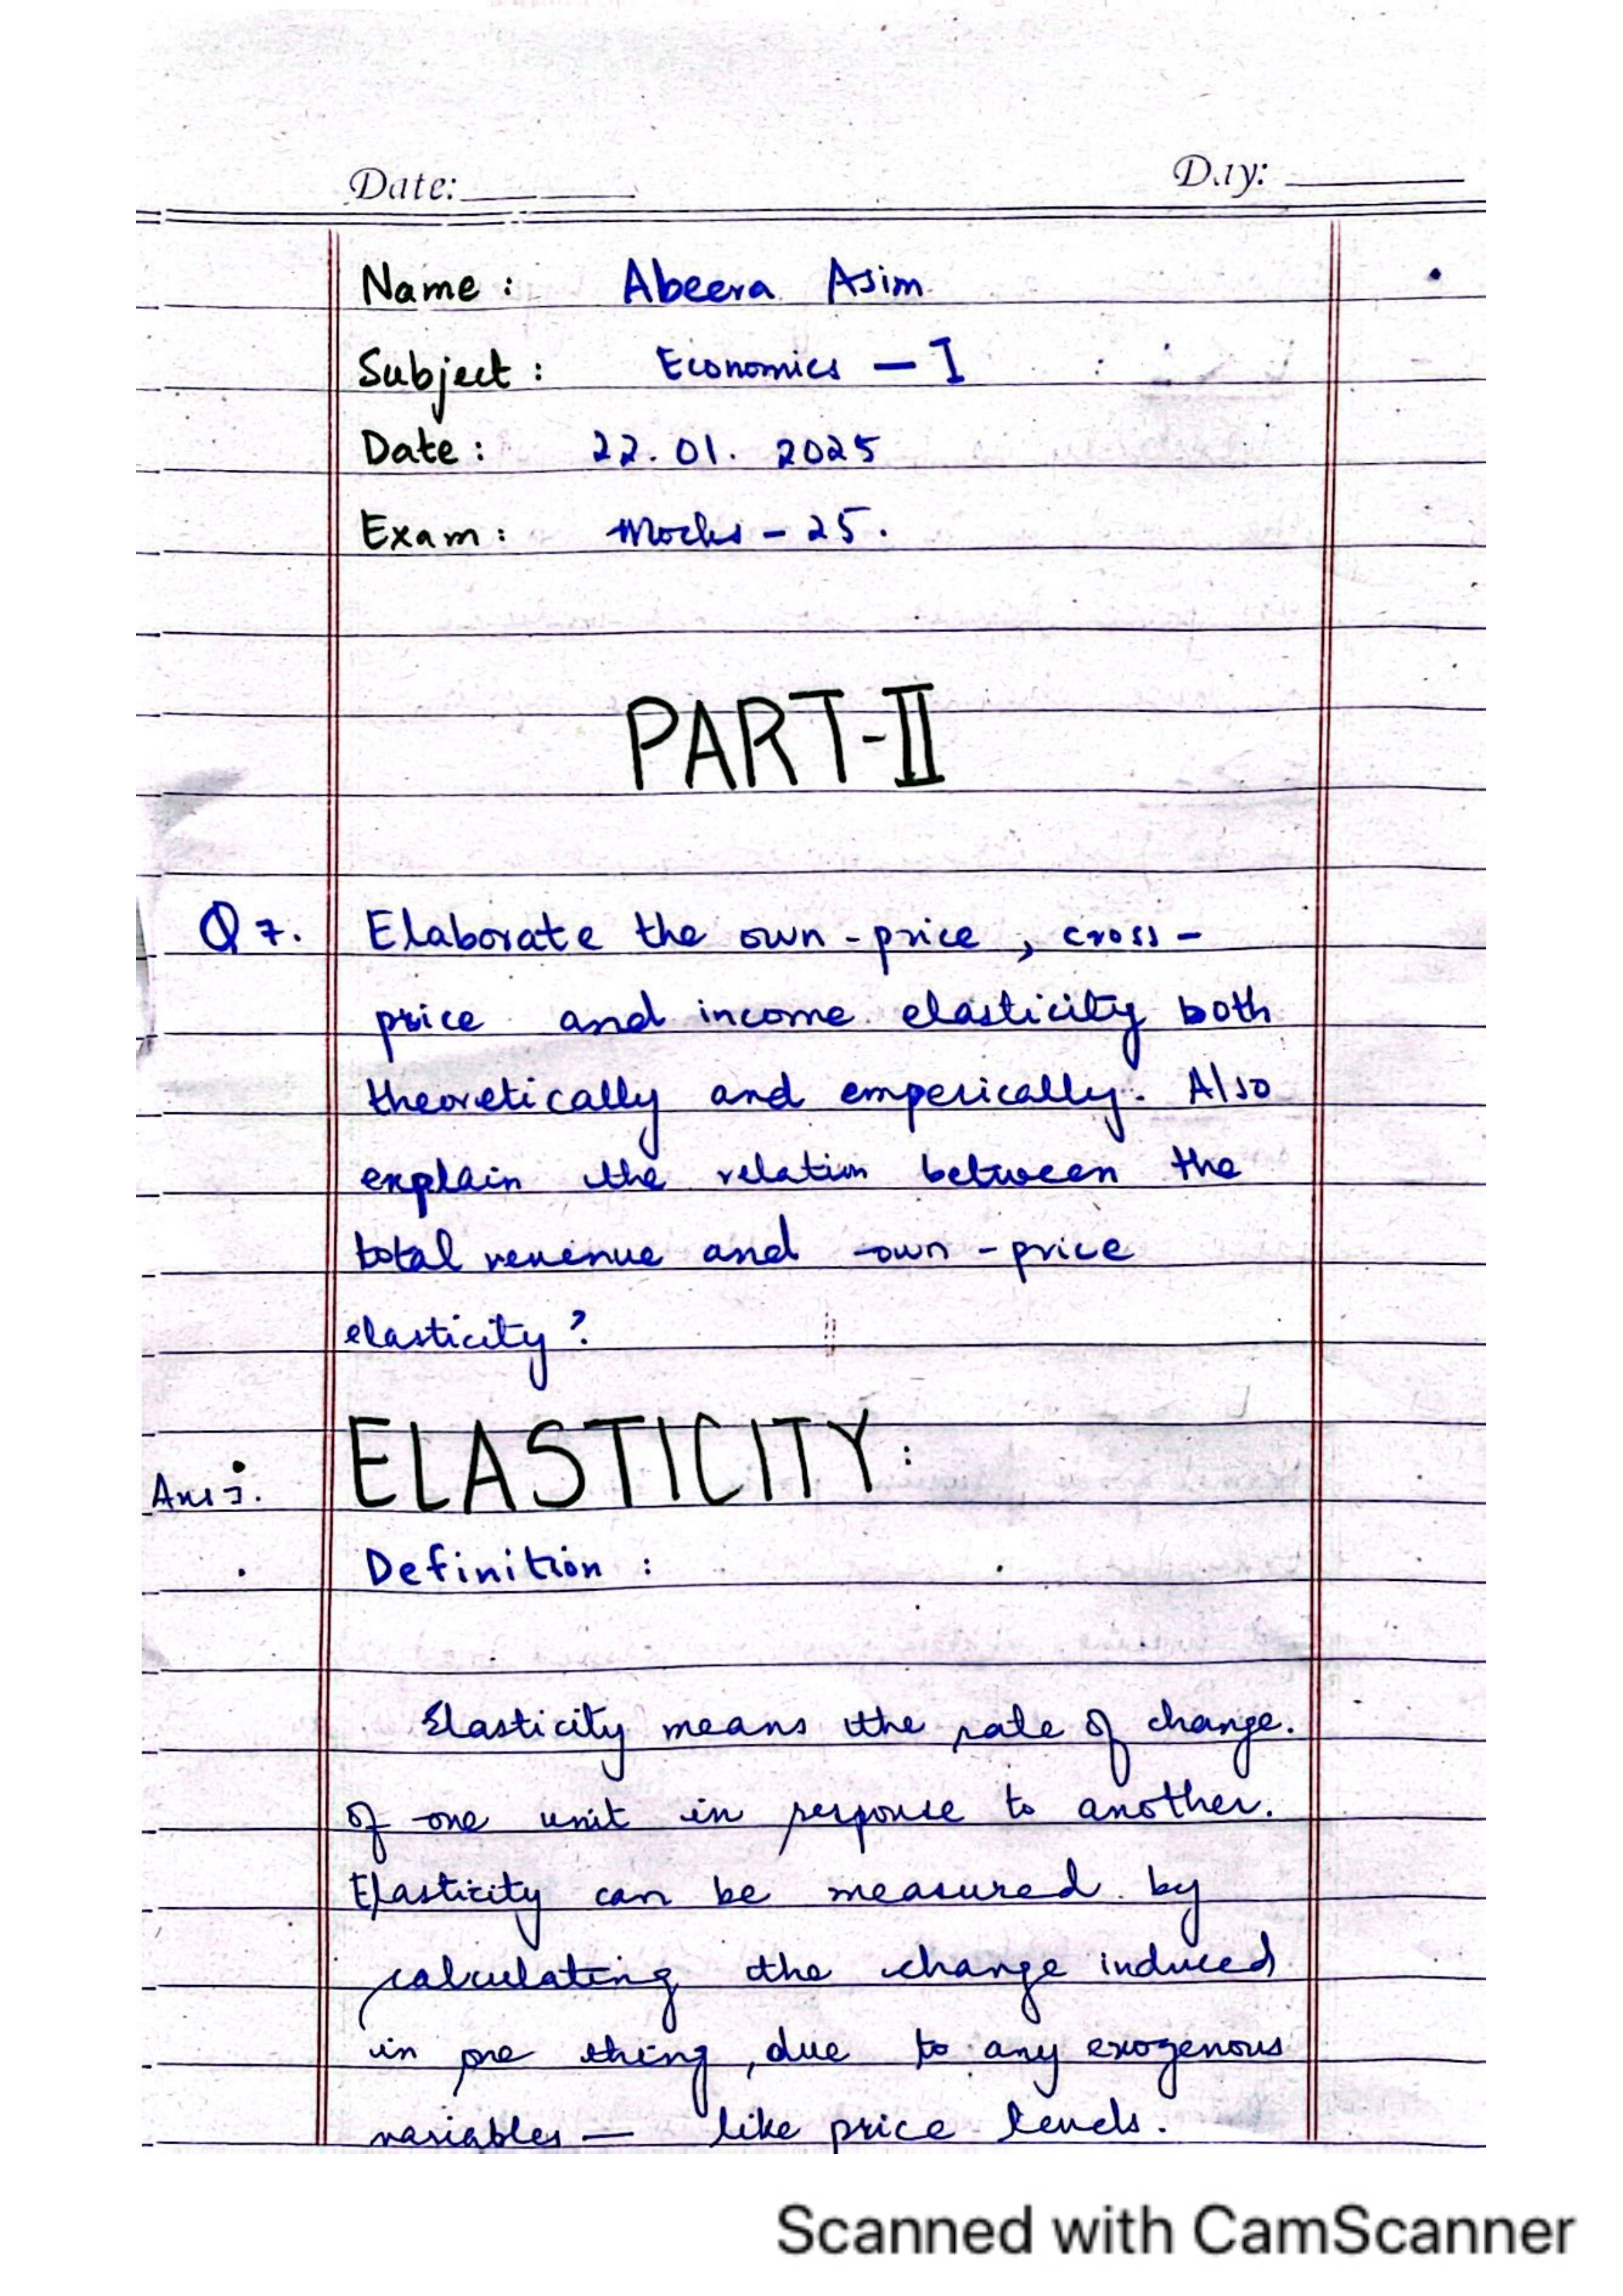 Date: Day:
Name: Abeera Asim
Subject: Economics - I
Date: 22.01.2025
Exam: Mocks - 25.
PART-II
Q7. Elaborate the own-price, cross-
price and income elasticity both
theoretically and emperically. Also
explain the relation between the
total revenue and own-price
elasticity?
Ans:. ELASTICITY:
Definition:
Elasticity means the rate of change.
of one unit in response to another.
Elasticity can be measured by
calculating the change induced
in one thing, due to any exogenous
variables — like price levels.
Scanned with CamScanner